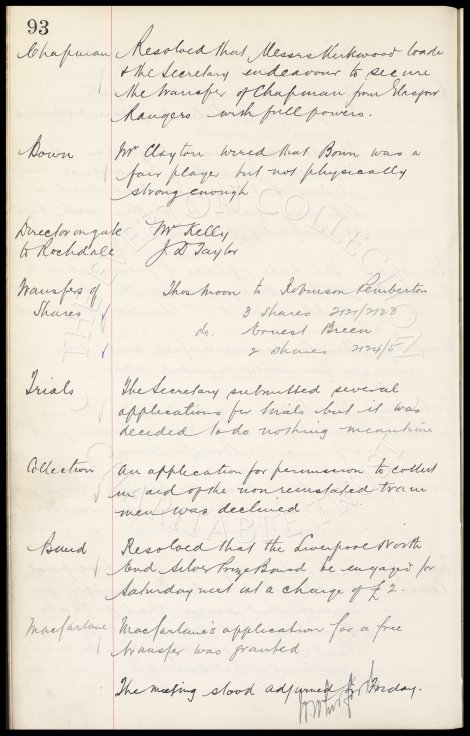 93
Chapman Resolved that Messrs Kirkwood Wade
& the Secretary endeavour to secure
the transfer of Chapman from Glasgow
Rangers with full powers.
Bown Mr Clayton wired that Bown was a
fair player but not physically
strong enough
Director on gate Mr Kelly
to Rochdale J D Taylor
Transfers of Thos Moon to Robinson Pemberton
Shares 3 shares 2121/2123
do. Ernest Breen
2 shares 2124/5
Trials The Secretary submitted several
applications for trials but it was
decided to do nothing meantime
Collection An application for permission to collect
in aid of the non reinstated tram
men was declined
Band Resolved that the Liverpool North
End Silver Prize Band be engaged for
Saturday next at a charge of £2.
Macfarlane Macfarlane's application for a free
transfer was granted
The meeting stood adjourned to Friday.
THE EVERTON COLLECTION
CHARITABLE TRUST